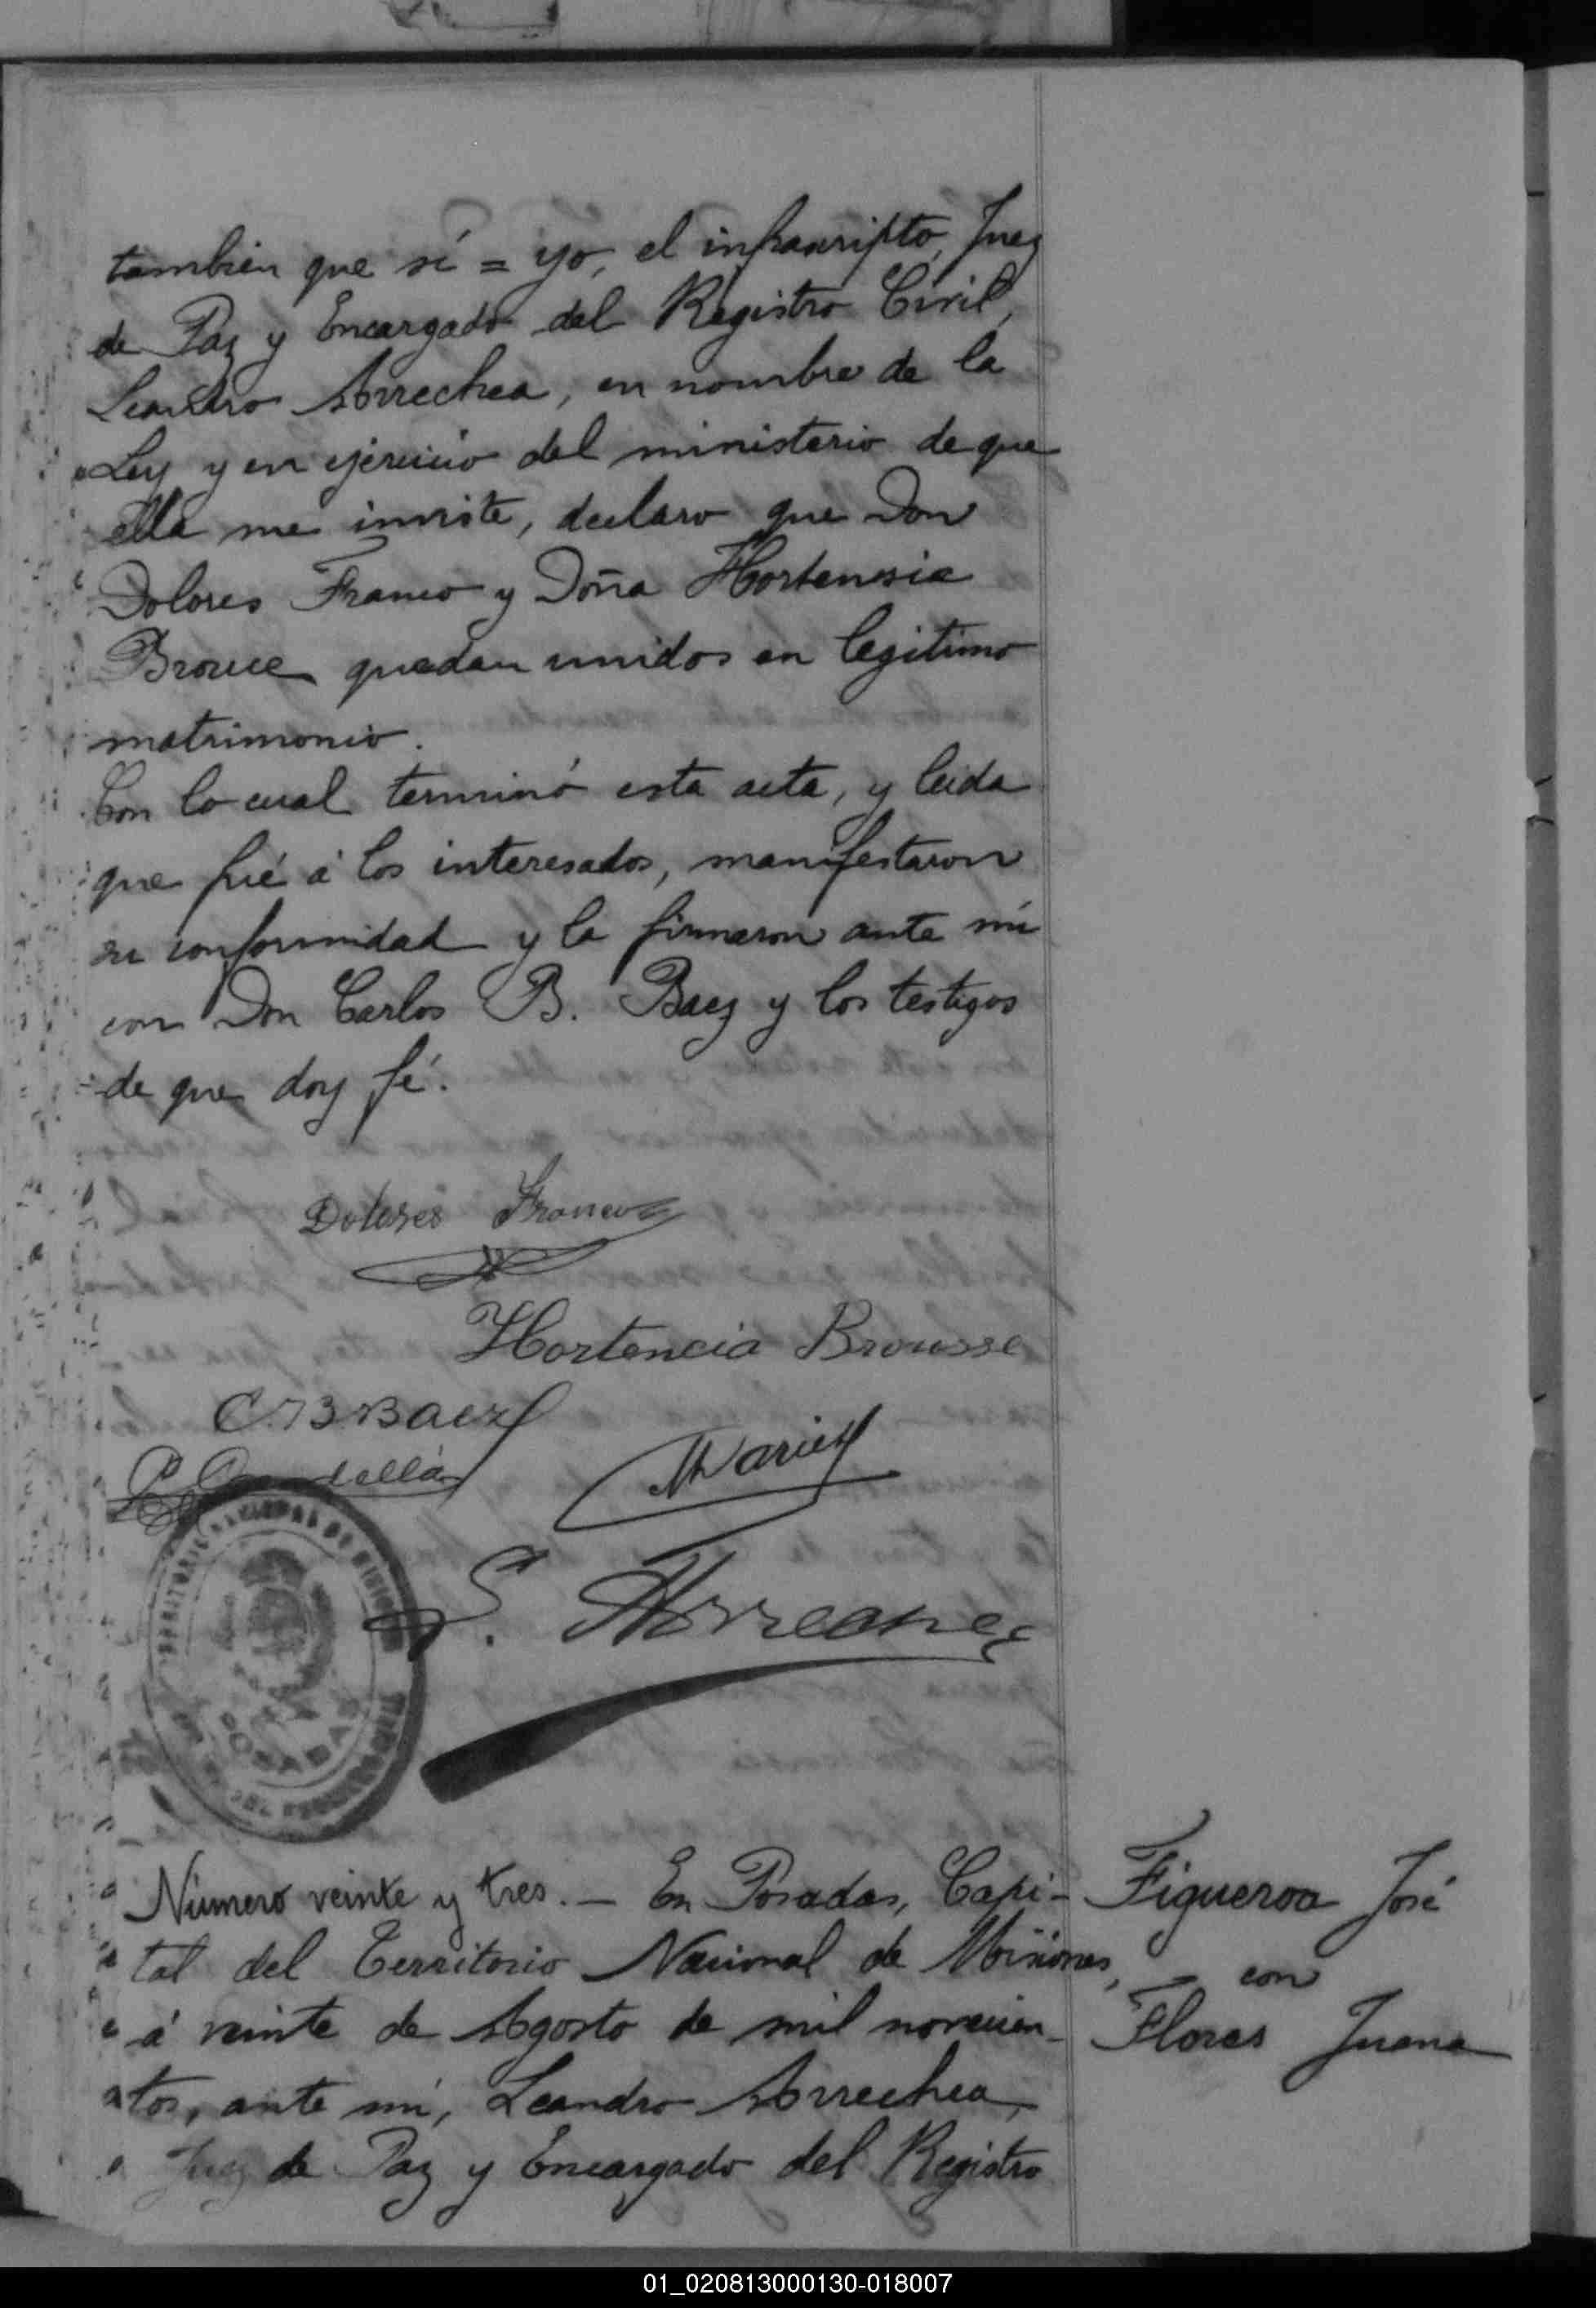 tambien que sí = yo, el infrascripto, Juez
de Paz y Encargado del Registro Civil,
Leandro Arrechea, en nombre de la
Ley y en ejercicio del ministerio de que
ella me inviste, declaro que Don
Dolores Franco y Doña Hortensia
Brouce quedan unidos en legitimo
matrimonio.
Con lo cual terminó esta acta, y leida
que fué á los interesados, manifestaron
su conformidad y la firmaron ante mí
con Don Carlos B. Baez y los testigos
de que doy fé.
Dolores Franco
Hortencia Brousse
C. B. Baez
POSADAS
Número veinte y tres. — En Posadas, Capi-
tal del Territorio Nacional de Misiones,
á veinte de Agosto de mil novecien-
tos, ante mí, Leandro Arrechea,
Juez de Paz y Encargado del Registro
Figueroa José
con
Flores Juana
01_020813000130-018007